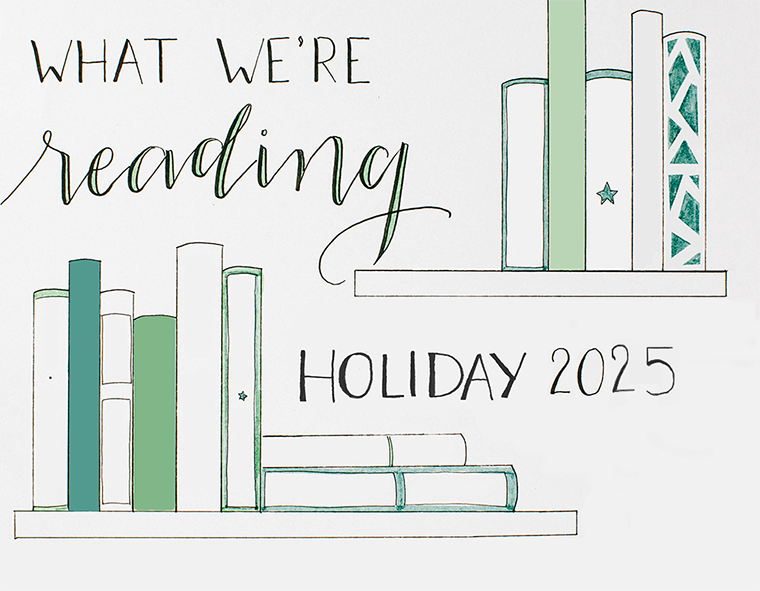 WHAT WE'RE
reading
HOLIDAY 2025